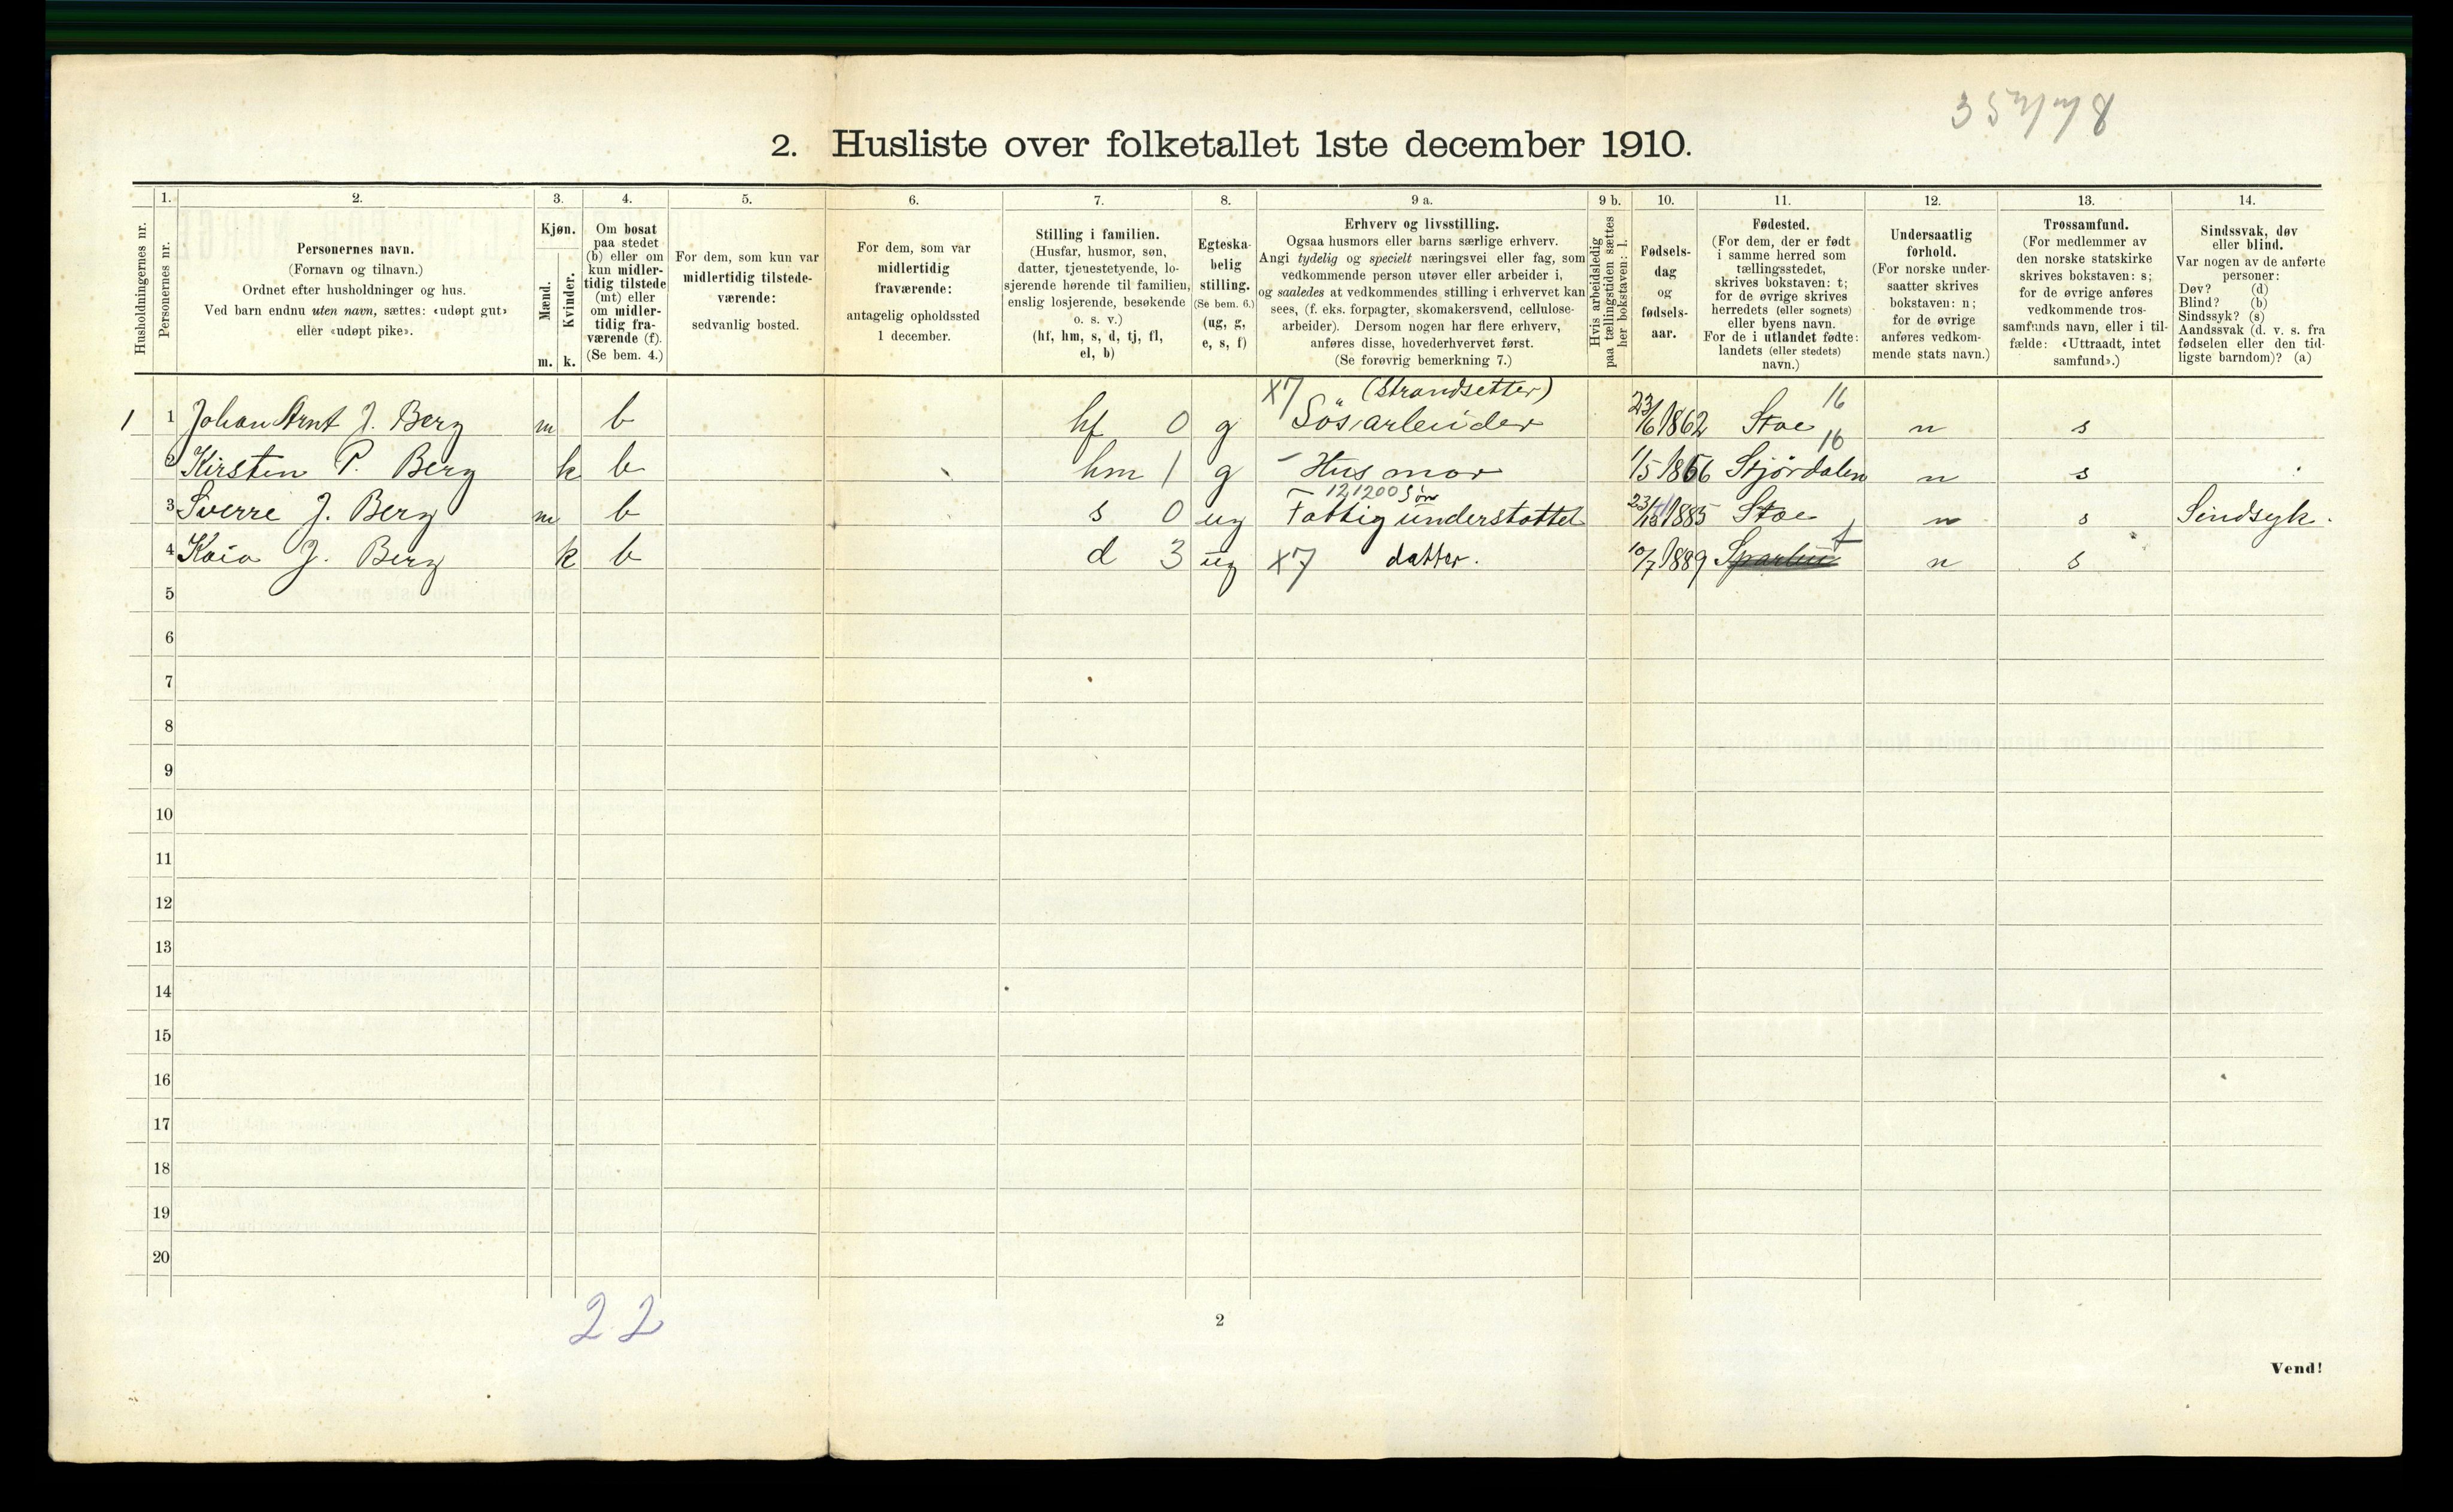 2. Husliste over folketallet 1ste december 1910.
Husholdningernes nr.
1.
Personernes nr.
2.
Personernes navn.
(Fornavn og tilnavn.)
Ordnet efter husholdninger og hus.
Ved barn endnu uten navn, sættes: «udøpt gut»
eller «udøpt pike».
3.
Kjøn.
Mænd.
Kvinder.
m. k.
4.
Om bosat
paa stedet
(b) eller om
kun midler-
tidig tilstede
(mt) eller
om midler-
tidig fra-
værende (f).
(Se bem. 4.)
5.
For dem, som kun var
midlertidig tilstede-
værende:
sedvanlig bosted.
6.
For dem, som var
midlertidig
fraværende:
antagelig opholdssted
1 december.
7.
Stilling i familien.
(Husfar, husmor, søn,
datter, tjenestetyende, lo-
sjerende hørende til familien,
enslig losjerende, besøkende
o. s. v.)
(hf, hm, s, d, tj, fl,
el, b)
8.
Egteska-
belig
stilling.
(Se bem. 6.)
(ug, g,
e, s, f)
9 a.
Erhverv og livsstilling.
Ogsaa husmors eller barns særlige erhverv.
Angi tydelig og specielt næringsvei eller fag, som
vedkommende person utøver eller arbeider i,
og saaledes at vedkommendes stilling i erhvervet kan
sees, (f. eks. forpagter, skomakersvend, cellulose-
arbeider). Dersom nogen har flere erhverv,
anføres disse, hovederhvervet først.
(Se forøvrig bemerkning 7.)
9 b.
Hvis arbeidsledig
paa tællingstiden sættes
her bokstaven: l.
10.
Fødsels-
dag
og
fødsels-
aar.
11.
Fødested.
(For dem, der er født
i samme herred som
tællingsstedet,
skrives bokstaven: t;
for de øvrige skrives
herredets (eller sognets)
eller byens navn.
For de i utlandet fødte:
landets (eller stedets)
navn.)
12.
Undersaatlig
forhold.
(For norske under-
saatter skrives
bokstaven: n;
for de øvrige
anføres vedkom-
mende stats navn.)
13.
Trossamfund.
(For medlemmer av
den norske statskirke
skrives bokstaven: s;
for de øvrige anføres
vedkommende tros-
samfunds navn, eller i til-
fælde: «Uttraadt, intet
samfund».)
14.
Sindssvak, døv
eller blind.
Var nogen av de anførte
personer:
Døv? (d)
Blind? (b)
Sindssyk? (s)
Aandssvak (d. v. s. fra
fødselen eller den tid-
ligste barndom)? (a)
X7 (Strandsetter) 16
1 1 Johan Arnt J. Berg m b hf 0 g 23/6 1862 n s
16
2 Kirsten P. Berg k b hm 1 g - Husmor 1/5 1866 Stjørdalen n s
121200 Søn
3 Sverre J. Berg m b s 0 ug Fattig understøttet 1885 n s Sindsyk.
t
4 Kaia J. Berg k b d 3 ug X7 datter. 10/7 1889 n s
5
6
7
8
9
10
11
12
13
14
15
16
17
18
19
20
2 2
2
Vend!